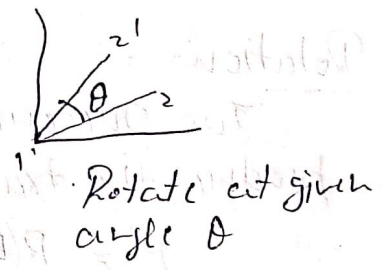 2'
θ
2
1'
. Rotate at given
angle θ